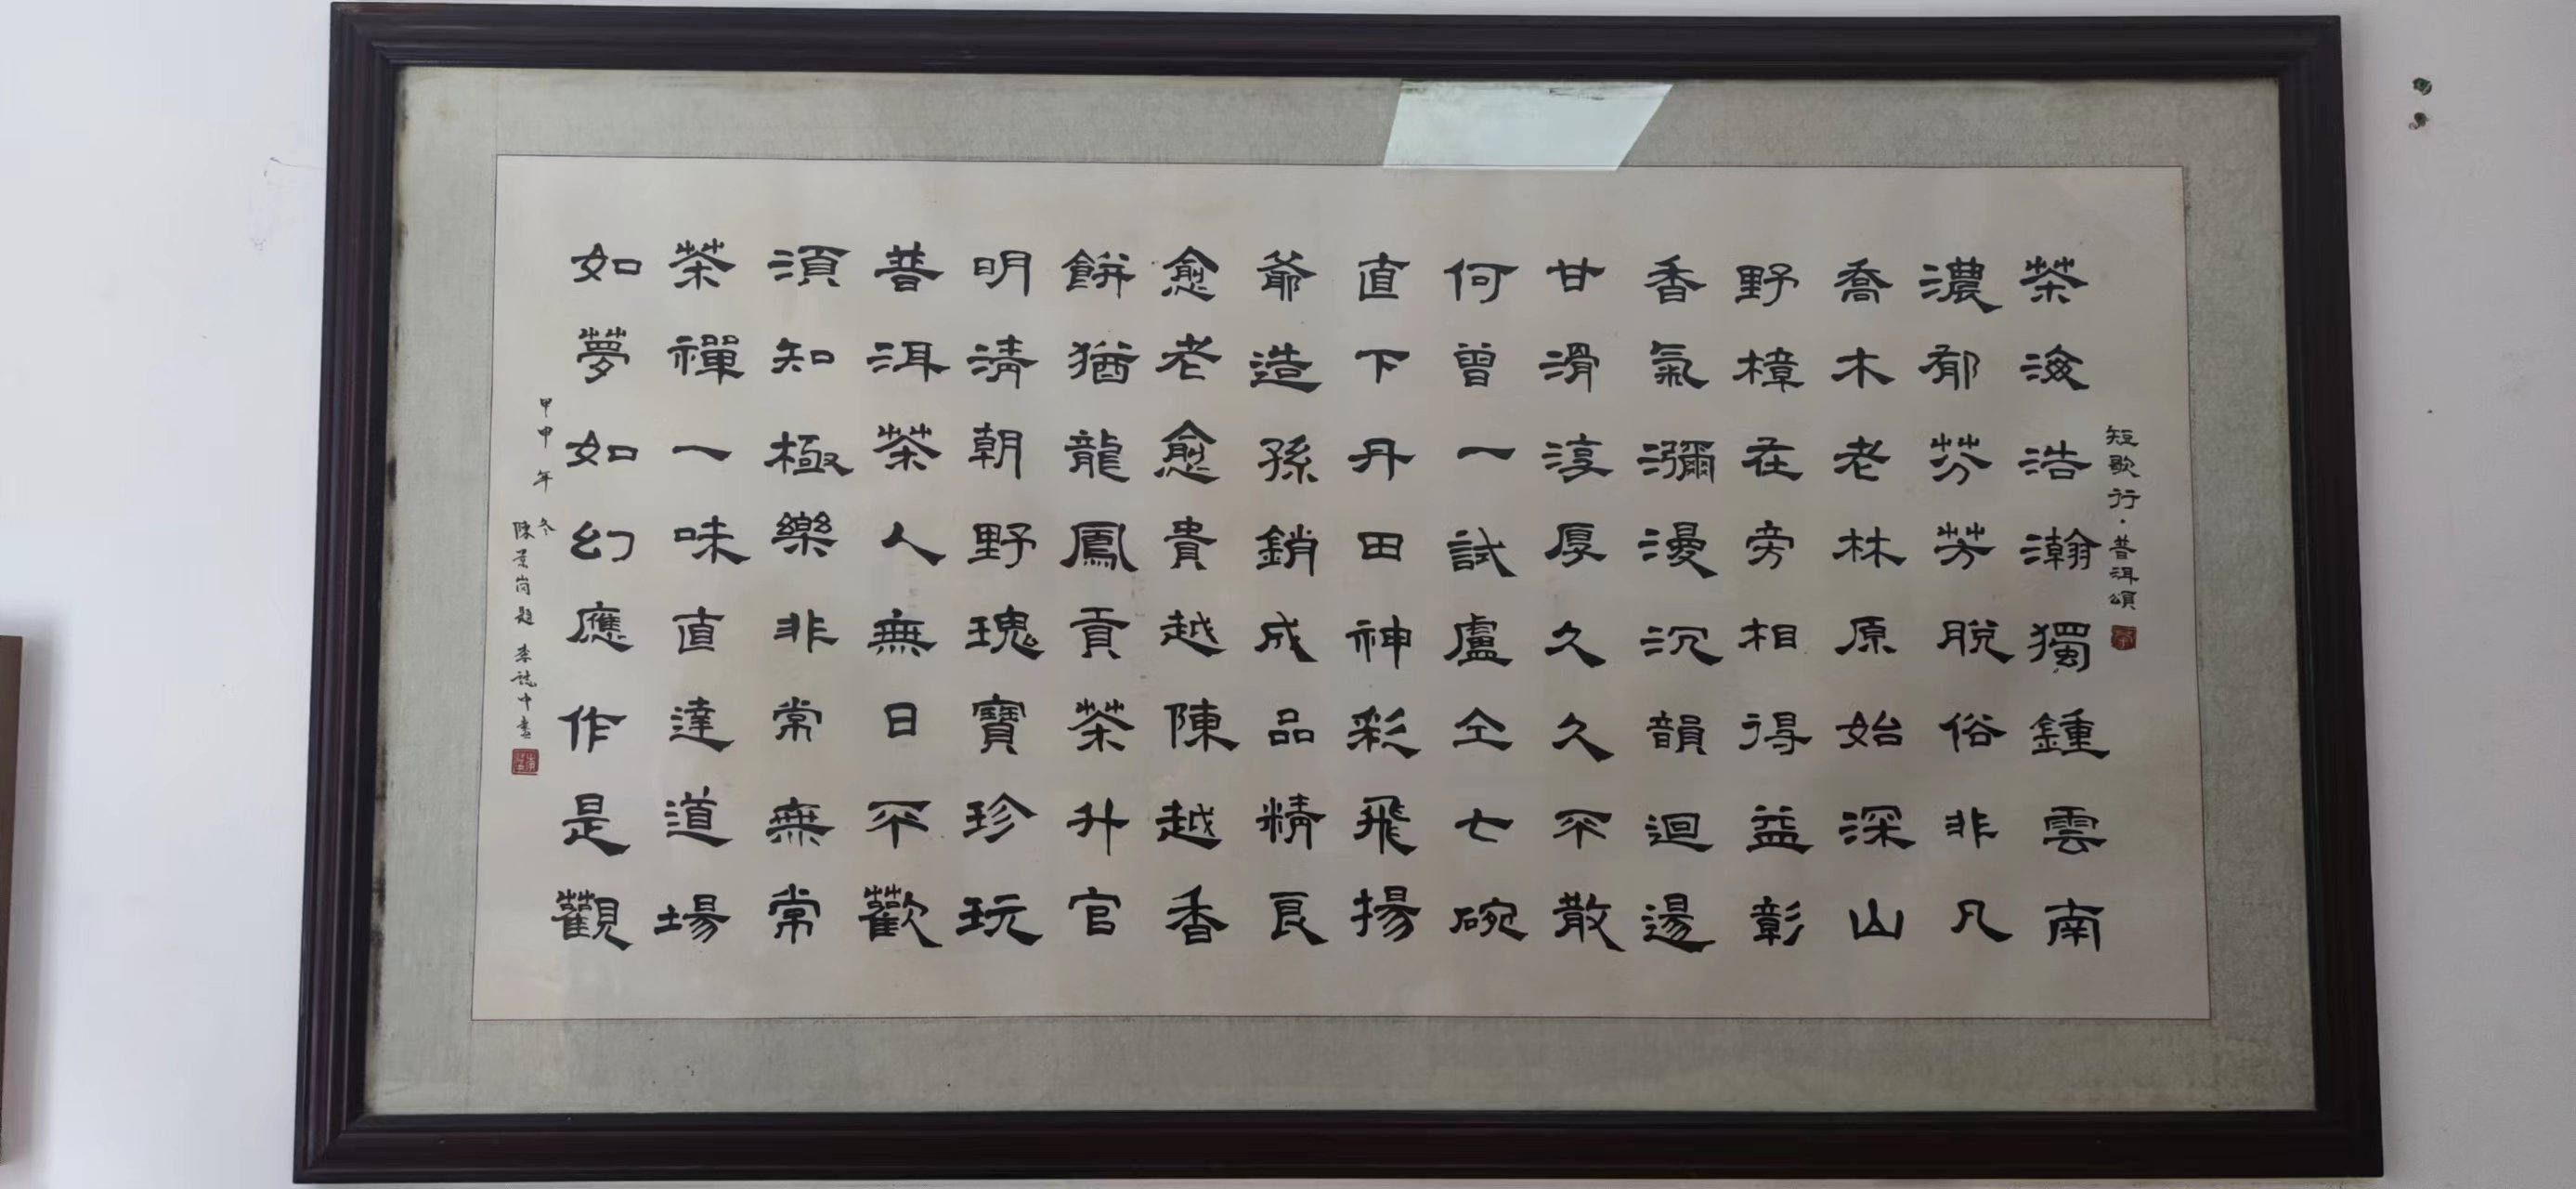 短歌行·普洱頌
茶海浩瀚獨鍾雲南
濃郁芬芳脫俗非凡
喬木老林原始深山
野樟在旁相得益彰
香氣瀰漫沉韻迴盪
甘滑淳厚久久不散
何曾一試盧仝七碗
直下丹田神彩飛揚
爺造孫銷成品精良
愈老愈貴越陳越香
餅猶龍鳳貢茶升官
明清朝野瑰寶珍玩
普洱茶人無日不歡
須知極樂非常無常
茶禪一味直達道場
如夢如幻應作是觀
甲申年冬
陳景崗題 李誌中書